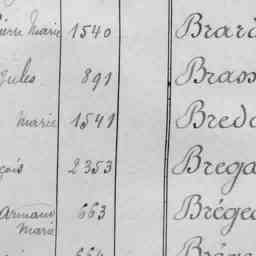 Pierre Marie 1540 Brar
Jules 891 Brass
Marie 1541 Bredo
çois 2353 Brega
Armand 663 Brégeo
Marie
664 Brége